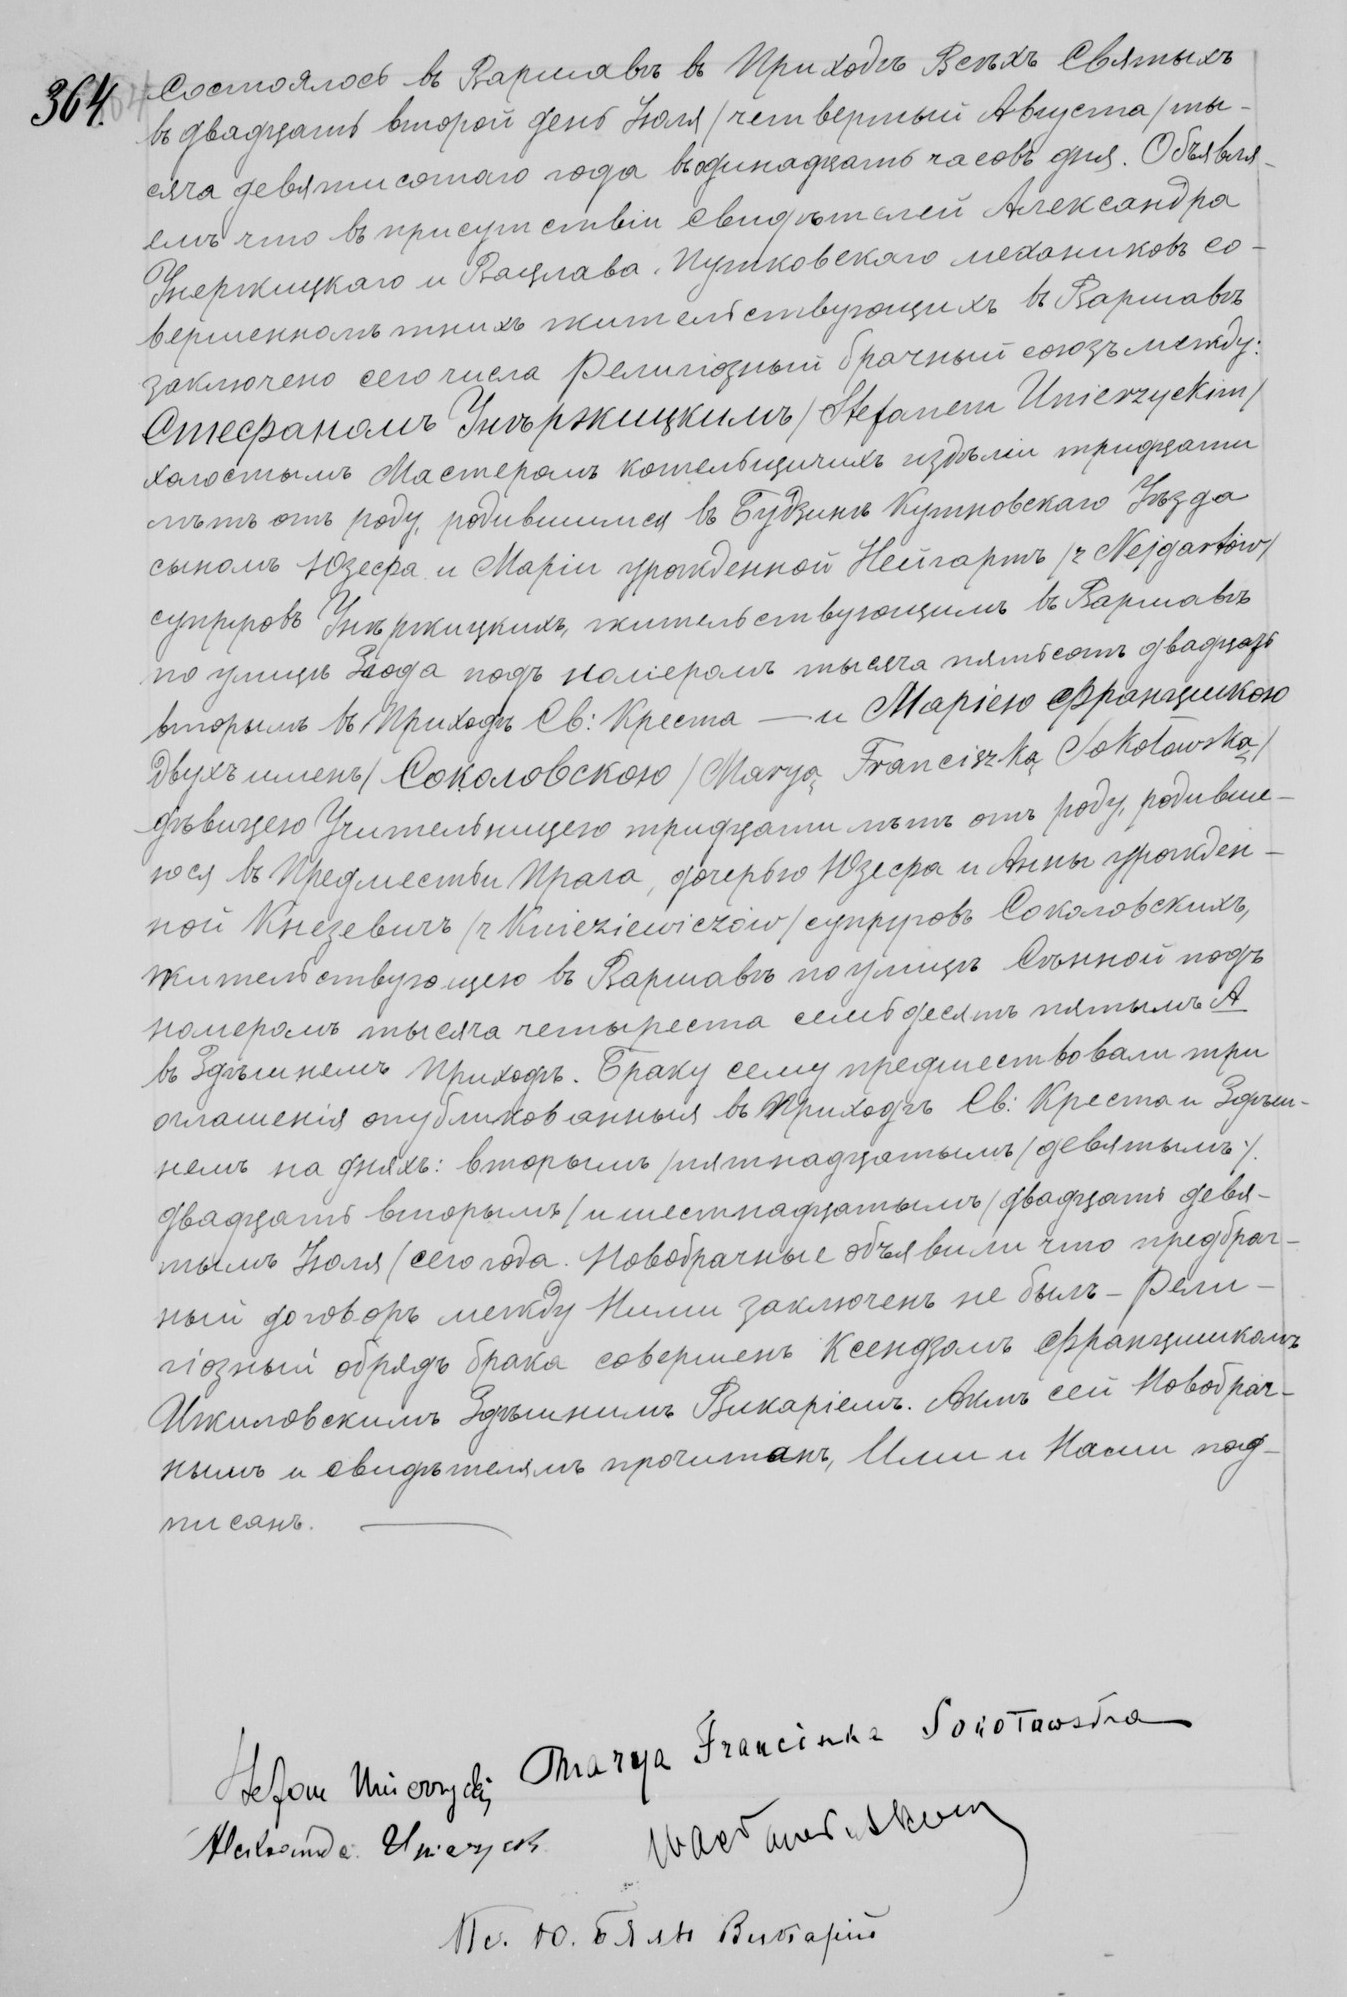 364. Состоялось въ Варшавѣ въ Приходѣ Всѣхъ Святыхъ
въ двадцать второй день Іюля /четвертый Августа/ ты-
сяча девятисотаго года въ одинадцать часовъ дня. Объявля-
емъ что въ присутствіи свидѣтелей Александра
Унержицкаго и Вацлава Путковскаго механиковъ со-
вершеннолѣтнихъ жительствующихъ въ Варшавѣ
заключено сего числа Религіозный брачный союзъ между:
Стефаномъ Унѣржицкимъ /Stefanem Unierzyckim/
холостымъ Мастеромъ котельщичихъ издѣліи тридцати
лѣтъ отъ роду, родившимся въ Будзинѣ Кутновскаго Уѣзда
сыномъ Юзефа и Маріи урожденной Нейгартъ /z Nejgartów/
супруговъ Унѣржицкихъ, жительствующимъ въ Варшавѣ
по улицѣ Згода подъ номеромъ тысяча пятьсотъ двадцать
вторымъ въ Приходѣ Св: Креста — и Маріею Францишкою
двухъ именъ/ Соколовскою /Maryą Franciszką Sokołowską/
дѣвицею Учительницею тридцати лѣтъ отъ роду, родивше-
юся въ Предместьи Прага, дочерью Юзефа и Анны урожден-
ной Кнезевичъ /z Knieziewiczów/ супруговъ Соколовскихъ,
жительствующею въ Варшавѣ по улицѣ Сѣнной подъ
номеромъ тысяча четыреста семьдесятъ пятымъ А
въ Здѣшнемъ Приходѣ. Браку сему предшествовали три
оглашенія опубликованныя въ Приходѣ Св: Креста и Здѣш-
немъ на дняхъ: вторымъ /пятнадцатымъ/ девятымъ/.
двадцать вторымъ/ и шестнадцатымъ /двадцать девя-
тымъ Іюля/ сего года. Новобрачные объявили что предбрач-
ный договоръ между Ними заключенъ не былъ – Рели-
гіозный обрядъ брака совершенъ Ксендзомъ Францишкомъ
Ижиловскимъ Здѣшнимъ Викаріемъ. Актъ сей Новобрач-
нымъ и свидѣтелямъ прочитанъ, Ими и Нами под-
писанъ.
Stefan Unierzycki Marya Franciszka Sokołowska
Aleksander Unierzycki
Кс. Ю. Бялы Викарій